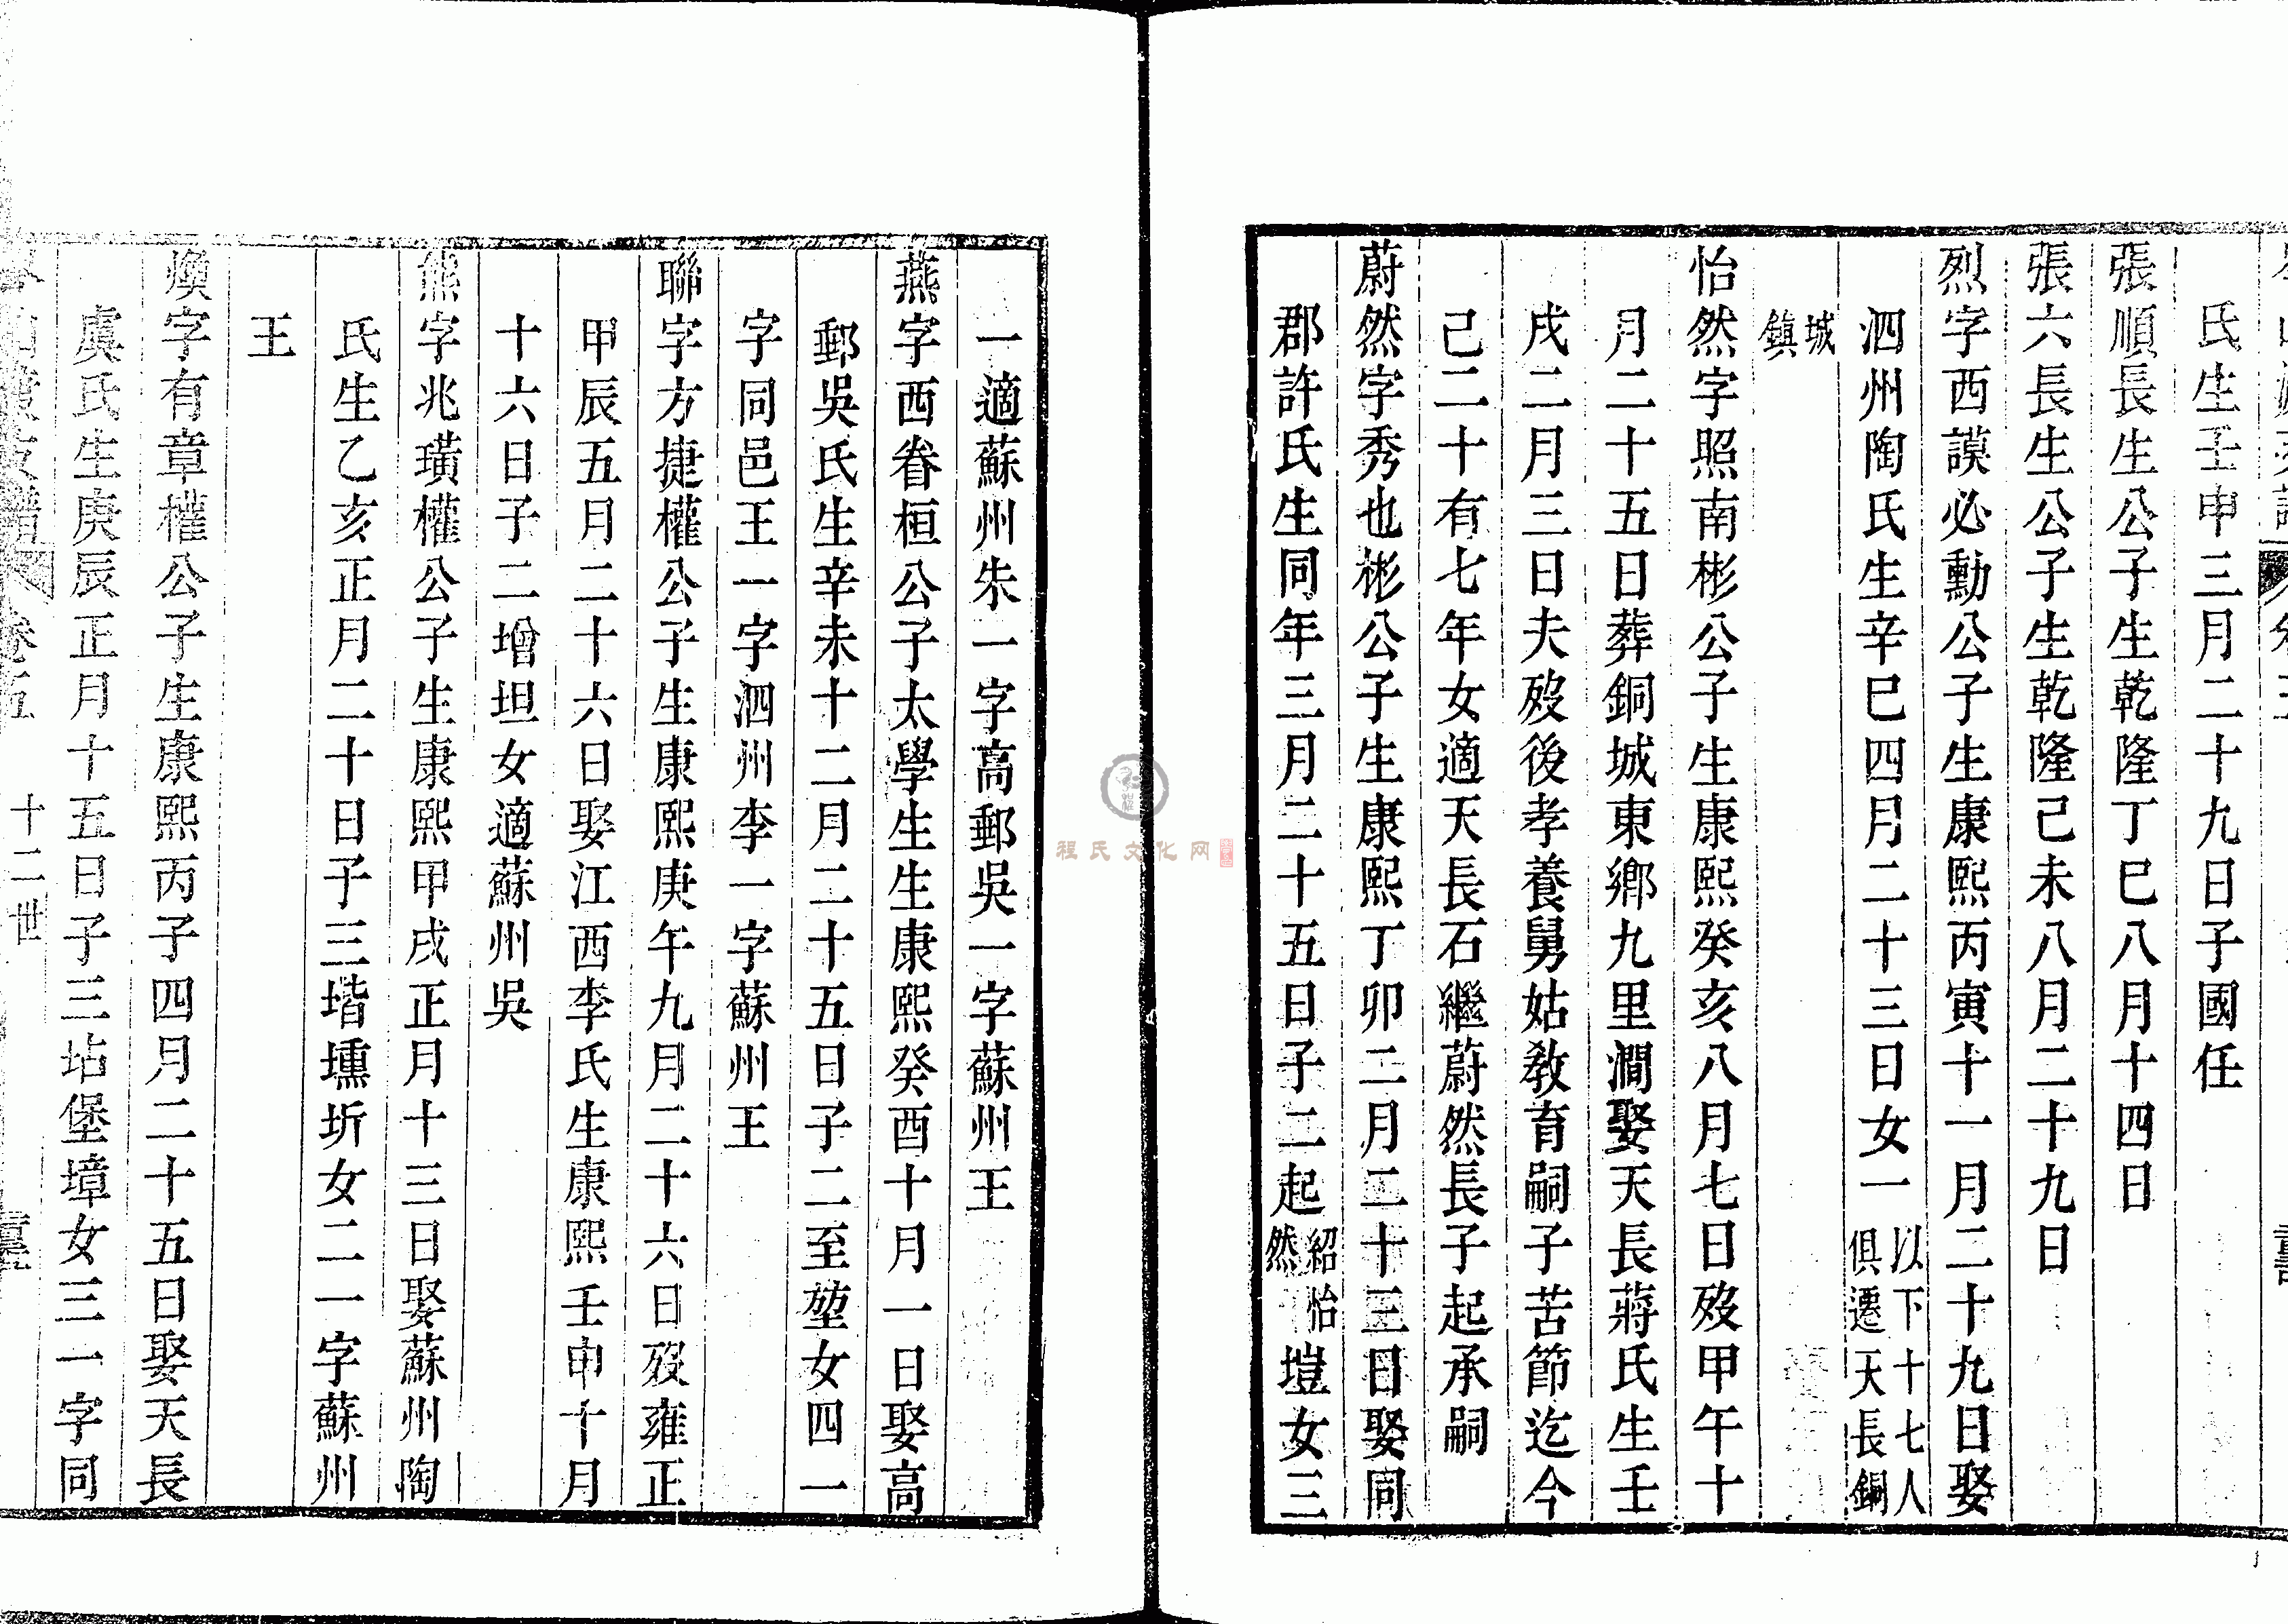 氏生壬申三月二十九日子國任
張順長生公子生乾隆丁巳八月十四日
張六長生公子生乾隆己未八月二十九日
烈字西謨必勳公子生康熙丙寅十一月二十九日娶
泗州陶氏生辛巳四月二十三日女一以下十七人俱遷天長銅
城鎮
怡然字照南彬公子生康熙癸亥八月七日歿甲午十
月二十五日葬銅城東鄉九里澗娶天長蔣氏生壬
戌二月三日夫歿後孝養舅姑教育嗣子苦節迄今
己二十有七年女適天長石繼蔚然長子起承嗣
蔚然字秀也彬公子生康熙丁卯二月二十三日娶同
郡許氏生同年三月二十五日子二起紹怡然塏女三
一適蘇州朱一字高郵吳一字蘇州王
燕字西眷桓公子太學生生康熙癸酉十月一日娶高
郵吳氏生辛未十二月二十五日子二至堃女四一
字同邑王一字泗州李一字蘇州王
聯字方捷權公子生康熙庚午九月二十六日歿雍正
甲辰五月二十六日娶江西李氏生康熙壬申十月
十六日子二增坦女適蘇州吳
熊字兆璜權公子生康熙甲戌正月十三日娶蘇州陶
氏生乙亥正月二十日子三堦壎圻女二一字蘇州
王
煥字有章權公子生康熙丙子四月二十五日娶天長
虞氏生庚辰正月十五日子三坫堡墇女三一字同
卷五
十二世
程氏文化网